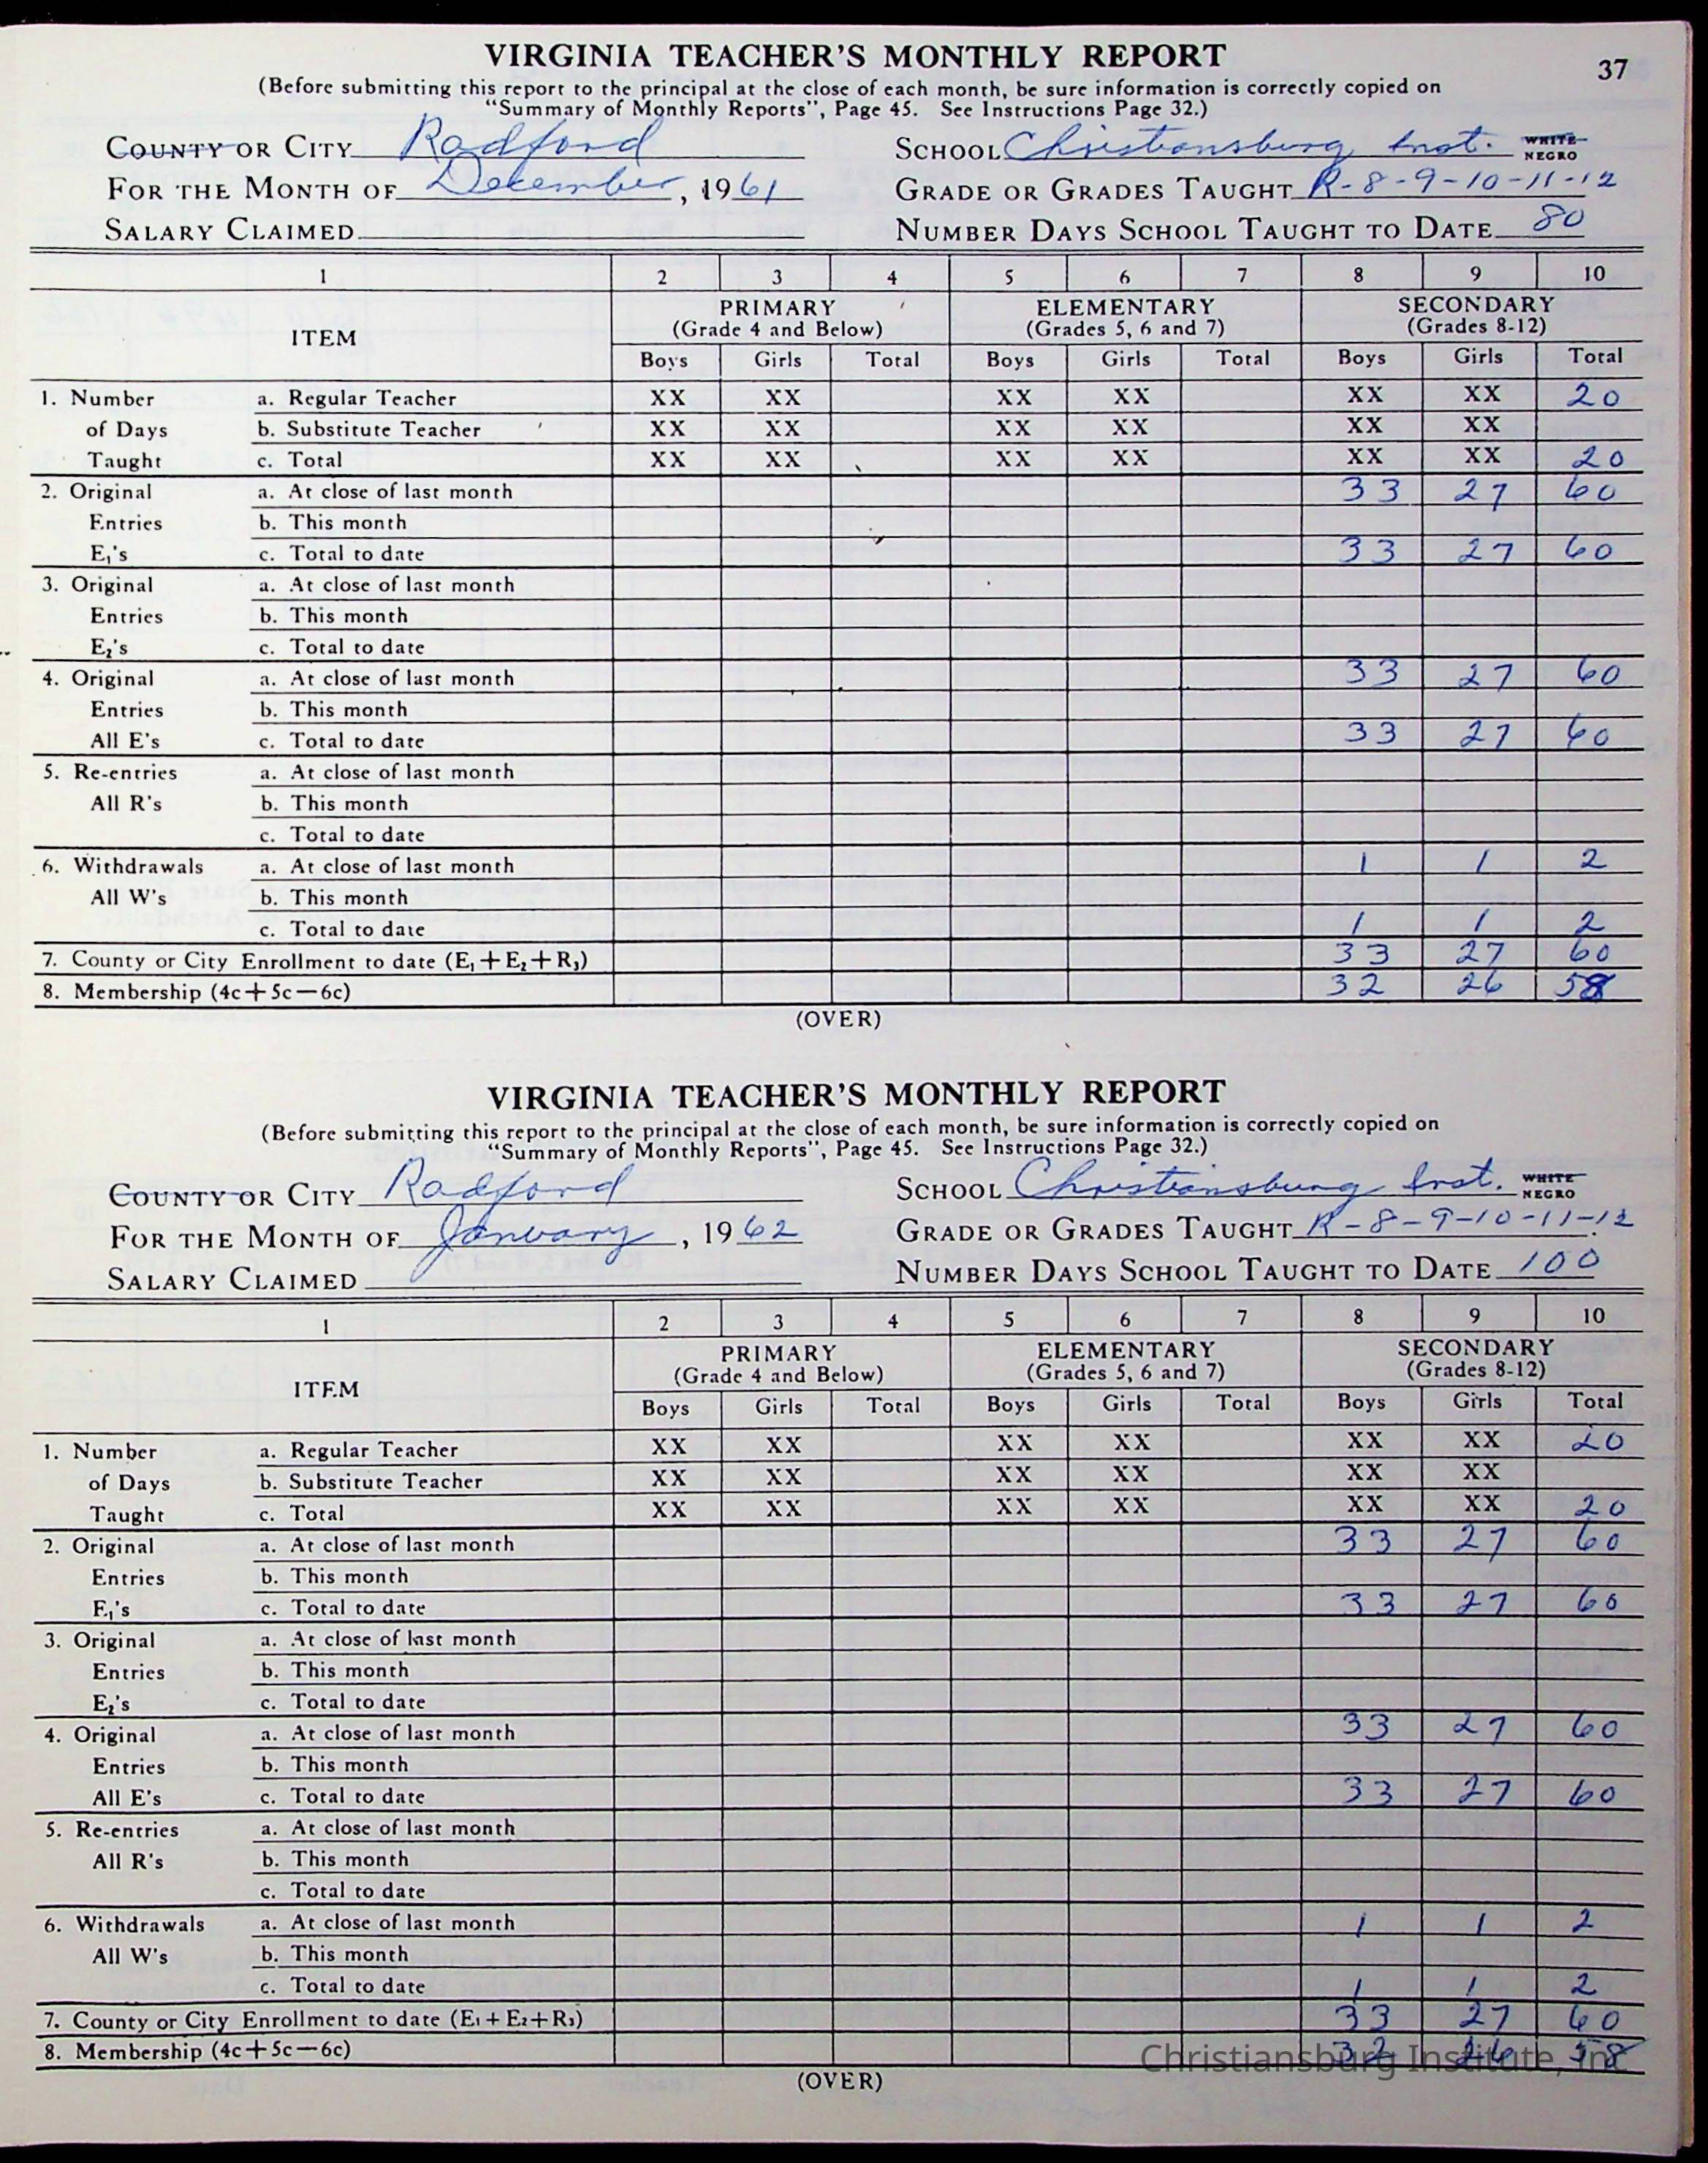 37
VIRGINIA TEACHER'S MONTHLY REPORT
(Before submitting this report to the principal at the close of each month, be sure information is correctly copied on
"Summary of Monthly Reports", Page 45. See Instructions Page 32.)
COUNTY OR CITY Radford SCHOOL Christiansburg Inst. WHITE NEGRO
FOR THE MONTH OF December, 1961 GRADE OR GRADES TAUGHT R-8-9-10-11-12
SALARY CLAIMED NUMBER DAYS SCHOOL TAUGHT TO DATE 80
1 2 3 4 5 6 7 8 9 10
ITEM PRIMARY (Grade 4 and Below) ELEMENTARY (Grades 5, 6 and 7) SECONDARY (Grades 8-12)
Boys Girls Total Boys Girls Total Boys Girls Total
1. Number a. Regular Teacher XX XX XX XX XX XX 20
of Days b. Substitute Teacher XX XX XX XX XX XX
Taught c. Total XX XX XX XX XX XX 20
2. Original a. At close of last month 33 27 60
Entries b. This month
E₁'s c. Total to date 33 27 60
3. Original a. At close of last month
Entries b. This month
E₂'s c. Total to date
4. Original a. At close of last month 33 27 60
Entries b. This month
All E's c. Total to date 33 27 60
5. Re-entries a. At close of last month
All R's b. This month
c. Total to date
6. Withdrawals a. At close of last month 1 1 2
All W's b. This month
c. Total to date 1 1 2
7. County or City Enrollment to date (E₁+E₂+R₃) 33 27 60
8. Membership (4c+5c−6c) 32 26 58
(OVER)
VIRGINIA TEACHER'S MONTHLY REPORT
(Before submitting this report to the principal at the close of each month, be sure information is correctly copied on
"Summary of Monthly Reports", Page 45. See Instructions Page 32.)
COUNTY OR CITY Radford SCHOOL Christiansburg Inst. WHITE NEGRO
FOR THE MONTH OF January, 1962 GRADE OR GRADES TAUGHT R-8-9-10-11-12
SALARY CLAIMED NUMBER DAYS SCHOOL TAUGHT TO DATE 100
1 2 3 4 5 6 7 8 9 10
ITEM PRIMARY (Grade 4 and Below) ELEMENTARY (Grades 5, 6 and 7) SECONDARY (Grades 8-12)
Boys Girls Total Boys Girls Total Boys Girls Total
1. Number a. Regular Teacher XX XX XX XX XX XX 20
of Days b. Substitute Teacher XX XX XX XX XX XX
Taught c. Total XX XX XX XX XX XX 20
2. Original a. At close of last month 33 27 60
Entries b. This month
E₁'s c. Total to date 33 27 60
3. Original a. At close of last month
Entries b. This month
E₂'s c. Total to date
4. Original a. At close of last month 33 27 60
Entries b. This month
All E's c. Total to date 33 27 60
5. Re-entries a. At close of last month
All R's b. This month
c. Total to date
6. Withdrawals a. At close of last month 1 1 2
All W's b. This month
c. Total to date 1 1 2
7. County or City Enrollment to date (E₁+E₂+R₃) 33 27 60
8. Membership (4c+5c−6c) 32 26 58
Christiansburg Institute, Inc
(OVER)